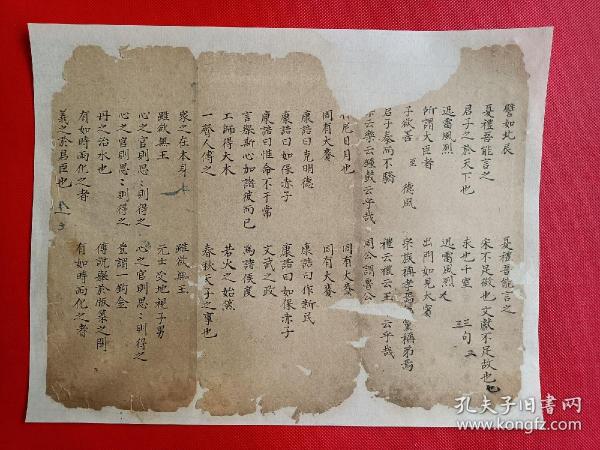 譬如北辰
夏禮吾能言之
君子之於天下也
迅雷風烈
所謂大臣者
子欲善 至 德風
君子泰而不驕
樂云樂云鐘鼓云乎哉
夏禮吾能言之
宋不足徵也文獻不足故也
求也千室
迅雷風烈
三句
出門如見大賓
宗族稱孝焉鄉黨稱弟焉
禮云禮云玉 云乎哉
周公謂魯公
仲尼日月也
周有大賚
康誥曰克明德
康誥曰如保赤子
康誥曰惟命不于常
言舉斯心加諸彼而已
工師得大木
一齊人傅之
周有大賚
周有大賚
康誥曰作新民
康誥曰如保赤子
文武之政
為諸侯度
若火之始然
春秋天子之事也
眾之在本
雖欲無王
心之官則思思則得之
心之官則思思則得之
丹之治水也
有如時雨化之者
義之於君臣也
雖欲無王
元士受地視子男
心之官則思思則得之
豈謂一鉤金
傅說舉於版築之間
有如時雨化之者
孔夫子旧书网
www.kongfz.com